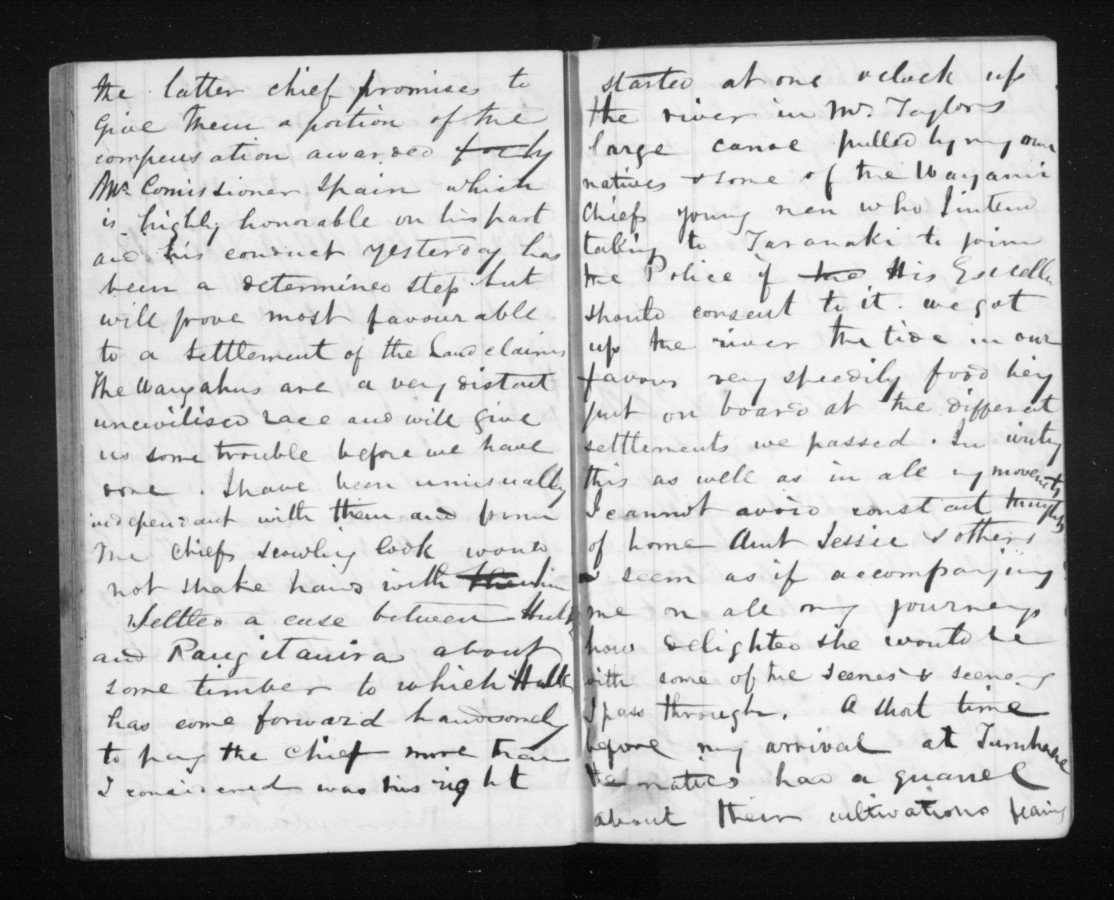 the latter chief promises to
give them a portion of the
compensation awarded
Mr. Comissioner Spain which
is highly honorable on his part
and his conduct yesterday has
been a determined step but
will prove most favourable
to a settlement of the Land claims
The are a very distant
uncivilised race and will give
us some trouble before we have
done. I have been unusually
independant with them and from
the chiefs scowling look would
not shake hands with him
Settled a case between
and Rangitauira about
some timber to which
has come forward handsomely
to pay the chief more than
I considered was his right
started at one oclock up
the river in Mr. Taylors
large canoe pulled by my own
natives & some of the
Chiefs young men who I intend
taking to Taranaki to join
the Police if the His Excelle
should consent to it. we got
up the river the tide in our
favour very speedily food being
put on board at the different
settlements we passed. In writing
this as well as in all my movements
I cannot avoid constant thoughts
of home Aunt Jessie & others
seem as if accompanying
me on all my journeys
how delighted she would be
with some of the scenes & scenery
I pass through. A short time
before my arrival at
the natives had a quarrel
about their cultivations